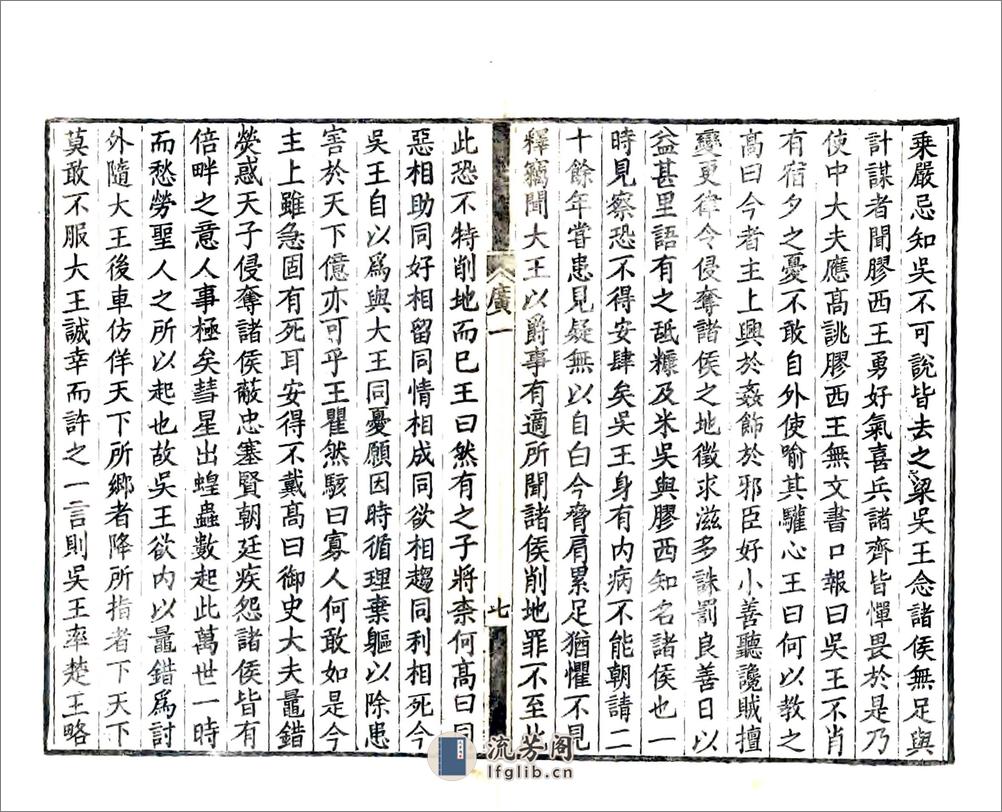 乘嚴忌知吳不可說皆去之梁吳王念諸侯無足與
計謀者聞膠西王勇好氣喜兵諸齊皆憚畏於是乃
使中大夫應髙誂膠西王無文書口報曰吳王不肖
有宿夕之憂不敢自外使喻其驩心王曰何以教之
髙曰今者主上興於姦飾於邪臣好小善聽讒賊擅
變更律令侵奪諸侯之地徵求滋多誅罰良善日以
益甚里語有之舐糠及米吳與膠西知名諸侯也一
時見察恐不得安肆矣吳王身有内病不能朝請二
十餘年嘗患見疑無以自白今脅肩累足猶懼不見
釋竊聞大王以爵事有適所聞諸侯削地罪不至此
廣一
七
此恐不特削地而已王曰然有之子將柰何髙曰同
惡相助同好相留同情相成同欲相趨同利相死今
吳王自以爲與大王同憂願因時循理棄軀以除患
害於天下億亦可乎王瞿然駭曰寡人何敢如是今
主上雖急固有死耳安得不戴髙曰御史大夫鼂錯
熒惑天子侵奪諸侯蔽忠塞賢朝廷疾怨諸侯皆有
倍畔之意人事極矣彗星出蝗蟲數起此萬世一時
而愁勞聖人之所以起也故吳王欲内以鼂錯爲討
外隨大王後車仿佯天下所鄉者降所指者下天下
莫敢不服大王誠幸而許之一言則吳王率楚王略
流芳阁
lfglib.cn